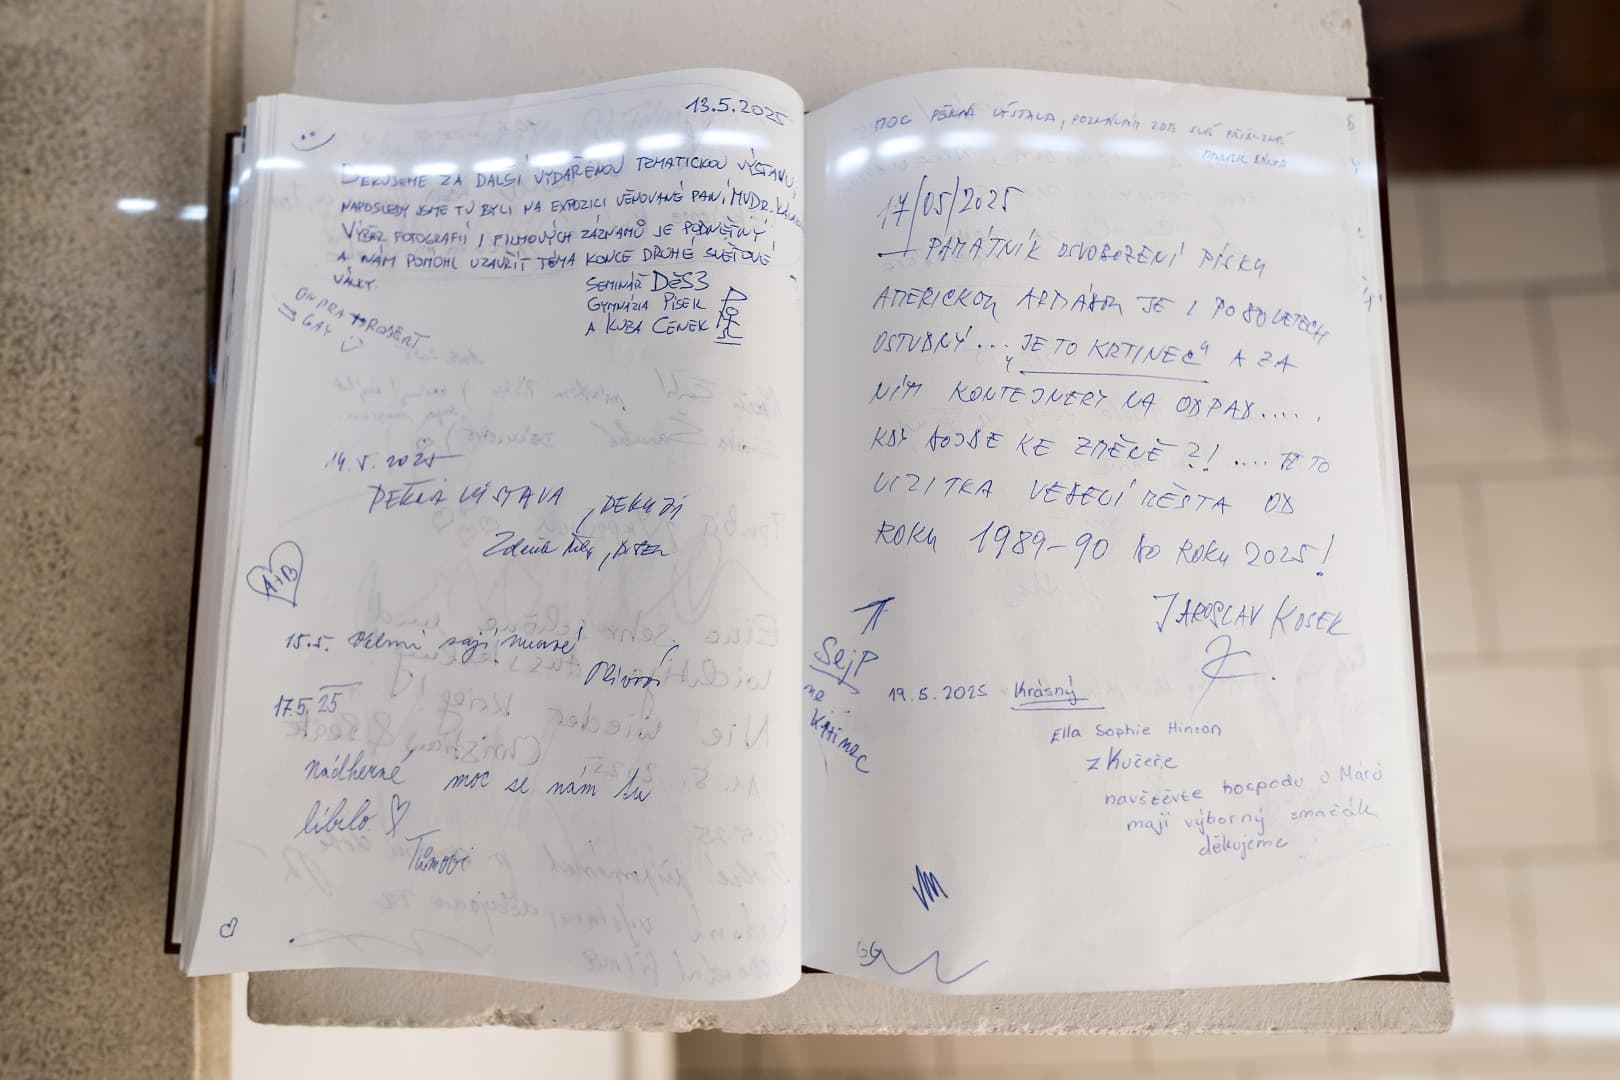 13.5.2025
DĚKUJEME ZA DALŠÍ VYDAŘENOU TEMATICKOU VÝSTAVU,
NAPOSLEDY JSME TU BYLI NA EXPOZICI VĚNOVANÉ PANÍ MUDR.
VÝBĚR FOTOGRAFIÍ I FILMOVÝCH ZÁZNAMŮ JE PODNĚTNÝ
A NÁM POMOHL UZAVŘÍT TÉMA KONCE DRUHÉ SVĚTOVÉ
VÁLKY.
SEMINÁŘ DĚS3
GYMNÁZIA PÍSEK
A KUBA CENEK
ONDRA ROBERT
GAY
14.5.2025
PĚKNÁ VÝSTAVA, DĚKUJI
A+B
15.5. Velmi zajímavé
17.5.25
nádherné moc se nám tu
líbilo
Tůmovi
MOC PĚKNÁ VÝSTAVA,
17/05/2025
PAMÁTNÍK OSVOBOZENÍ PÍSKU
AMERICKOU ARMÁDOU JE I PO 80 LETECH
OSTUDNÝ... „JE TO KRTINEC" A ZA
NÍM KONTEJNERY NA ODPAD.....
KDY DOJDE KE ZMĚNĚ?! .... JE TO
VIZITKA VEDENÍ MĚSTA OD
ROKU 1989-90 DO ROKU 2025!
JAROSLAV KOSEK
Sejp
ne
Krtinec
19.5.2025 Krásný
Ella Sophie Hinton
z Kučeře
navštěvte hospodu U Márů
mají výborný smažák
děkujeme
GG